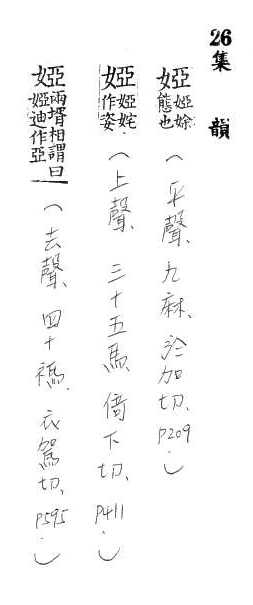 26集韻
婭 婭㛍態也（平聲、九麻、於加切、P209.）
婭 婭姹.作姿（上聲、三十五馬、倚下切、P411.）
婭 兩壻相謂曰婭迪作亞（去聲、四十禡、衣駕切、P595.）